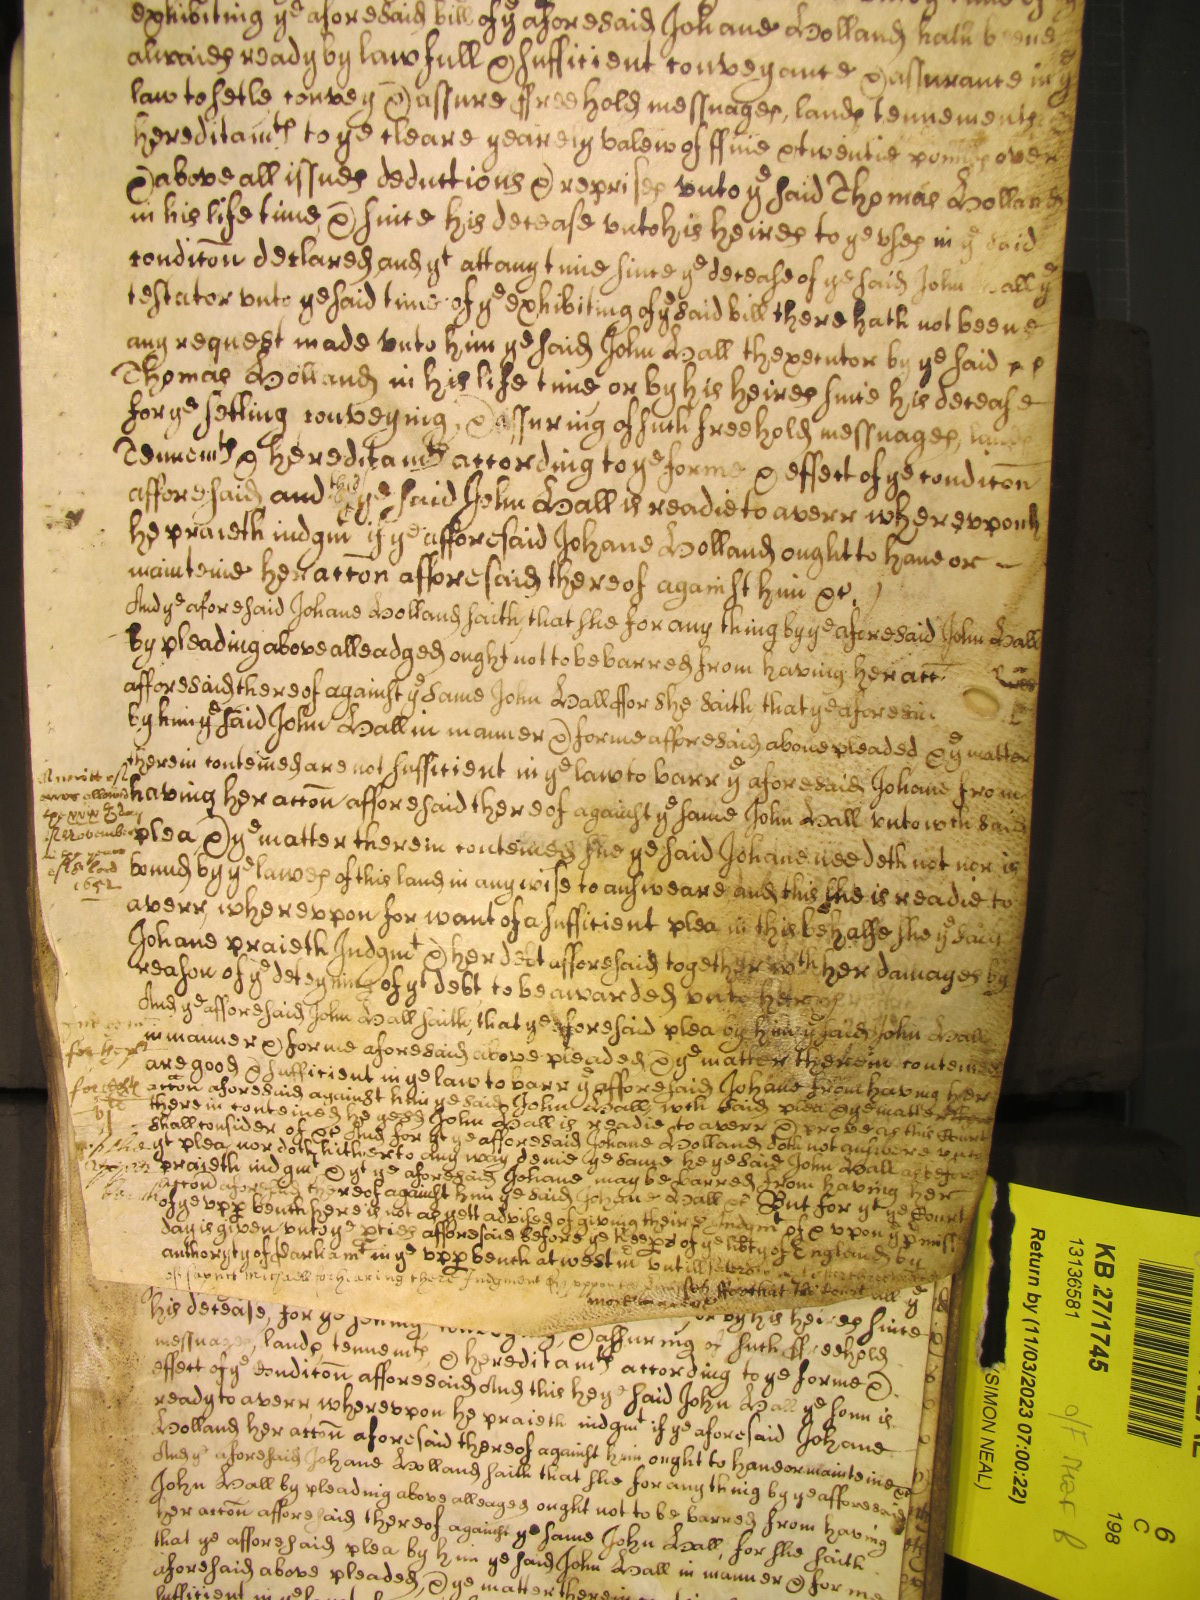 exhibiting ye aforesaid bill of ye aforesaid Johane Holland hath beene
alwaies ready by lawfull & sufficient conveyance & assurance in ye
law to setle convey & assure ffreehold messuages, lands tennements
hereditamts to ye cleare yearely valew of ffiue & twentie pounds over
& above all issues deductions & reprises vnto ye said Thomas Holland
in his life time, & since his decease vnto his heires to ye vses in ye said
condicon declared, and yt att any time since ye decease of ye said John Hall ye
testator vnto ye said time of ye exhibiting of ye said bill there hath not beene
any request made vnto him ye said John Hall thexecutor by ye said
Thomas Holland in his life time or by his heires since his decease
for ye setling conveying, & assuring of such freehold messuages, lands
Tennemts & hereditamts according to ye forme & effect of ye condicon
afforesaid, and this he ye said John Hall is readie to averr wherevppon
he praieth iudgmt if ye afforesaid Johane Holland ought to haue or
mainteine her accon afforesaid thereof against him &c.
And ye aforesaid Johane Holland saith, that she for any thing by ye aforesaid John Hall
by pleading above alleadged, ought not to be barred from having her acc
afforesaid thereof against ye same John Hall ffor she saith, that ye aforesaid
by him ye said John Hall in manner & forme afforesaid above pleaded & ye matter
therein conteined are not sufficient in ye law to barr ye aforesaid Johane from
having her accon afforesaid thereof against ye same John Hall vnto wch said
plea & ye matter therein conteined she ye said Johane needeth not nor is
bound by ye lawes of this land in any wise to answeare and this she is readie to
averr, wherevppon for want of a sufficient plea in this behalfe she ye said
Johane praieth Iudgmt & her debt afforesaid together wth her damages by
reason of ye deteyning of yt debt to be awarded vnto her &c
A writt of
error allowed
November
of ye Lord
1652
And ye afforesaid John Hall saith, that ye aforesaid plea by him ye said John Hall
in manner & forme aforesaid above pleaded, & ye matter therein conteined
are good & sufficient in ye law to barr ye afforesaid Johane from having her
accon aforesaid against him ye said John Hall, wch said plea & ye matter
therein conteined he ye said John Hall is readie to averr & prove as this Court
shall consider of &c. And for yt ye afforesaid Johane Holland doth not answere vnto
yt plea, nor doth hitherto any way denie ye same he ye said John Hall as before
praieth iudgmt & yt ye aforesaid Johane may be barred from having her
accon aforesaid thereof against him ye said John Hall &c But for yt ye Court
of ye vpper bench here is not as yett advised of giving their Iudgmt of & vpon ye premisses
day is given vnto ye pties afforesaid before ye Keeps of ye libty of England by
authoryty of Parliamt in ye vpper bench at westm vntill
of Saynt Michaell for hearing there Iudgment
his decease, for ye setling, conveying, & assuring of such ffreehold
or by his heires since
messuages, lands, tennemts, & hereditamts according to ye forme &
effect of ye condicon afforesaid And this he ye said John Hall ye sonn is
ready to averr wherevpon he praieth iudgmt if ye aforesaid Johane
Holland her accon aforesaid thereof against him ought to haue or mainteine &c
And ye aforesaid Johane Holland saith that she for any thing by ye afforesaid
John Hall by pleading above alleaged ought not to be barred from having
her accon afforesaid thereof against ye same John Hall, for she saith
that ye afforesaid plea by him ye said John Hall in manner & forme
aforesaid above pleaded, & ye matter therein
sufficient in ye law
KB 27/1745
13136581
Return by (11/03/2023 07:00:22)
(SIMON NEAL)
6
C
198